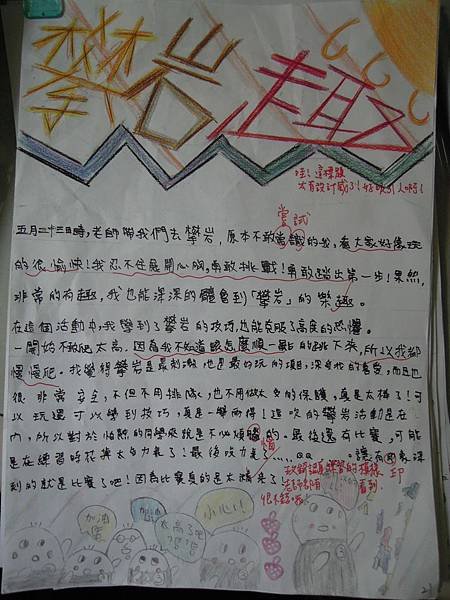 攀岩趣
哇！這標題
太有設計感了！好吸引人啊！
嘗試
五月二十三日時，老師帶我們去攀岩，原本不敢嘗識的我，看大家好像玩
的很愉快！我忍不住展開心胸，勇敢挑戰！勇敢踏出第一步！果然，
非常的有趣，我也能深深的體會到「攀岩」的樂趣。
在這個活動中，我學到了攀岩的技巧，也能克服了高度的恐懼。
一開始不敢爬太高，因為我不知道該怎麼順一點的跳下來，所以我都
慢慢爬。我覺得攀岩是最刺激也是最好玩的項目，深受我的喜愛，而且也
很非常安全，不但不用排隊，也不用做太多的保護，真是太棒了！可
以玩還可以學到技巧，真是一舉兩得！這次的攀岩活動是在
內，所以對於怕熱的同學來說是不必煩腦的。最後還有比賽，可能
惱
是在練習時花費太多力氣了！最後吹力是
QQ
。讓我印象深
刻的就是比賽了吧！因為比賽真的是太精采了！
印
你認真練習的模樣
老師都有看到
很不錯哦
加油
加油
喔
太高了吧
小心！
21